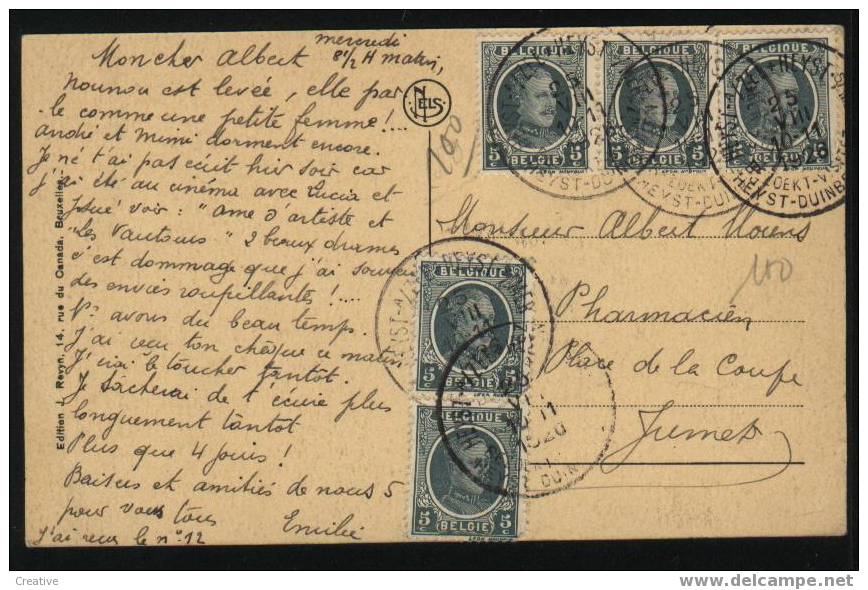 mercredi
8 1/2 H matin,
Mon cher Albert
Nounou est levée, elle par
le comme une petite femme!...
andré et Mimi dorment encore.
Je ne t'ai pas écrit hier soir car
j'ai été au cinéma avec Lucia et
voir : " ame d'artiste et
"les Vautours" 2 beaux drames
c'est dommage que j'ai souvent
des envies roupillantes !....
Ns avons du beau temps.
J'ai reçu ton chèque ce matin
J'irai le toucher tantôt.
Je tacherai de t'écrire plus
longuement tantôt
Plus que 4 jours !
Baisers et amitiés de nous 5
pour vous tous
Emilie
J'ai reçu le n° 12
Edition J. Revyn, 14, rue du Canada, Bruxelles.
NELS
100
BELGIQUE
5c 5c
BELGIE
BELGIQUE
5c 5c
BELGIE
BELGIQUE
5c 5c
BELGIE
HEYST-A/ZEE HEYST S/MER
25
VIII
10-11
1926
HEYST-DUINB
Monsieur Albert Moiens
100
BELGIQUE
5c 5c
BELGIE
BELGIQUE
5c 5c
BELGIE
Pharmacien
Place de la Coupe
Jumet
Creative
http://www.delcampe.net